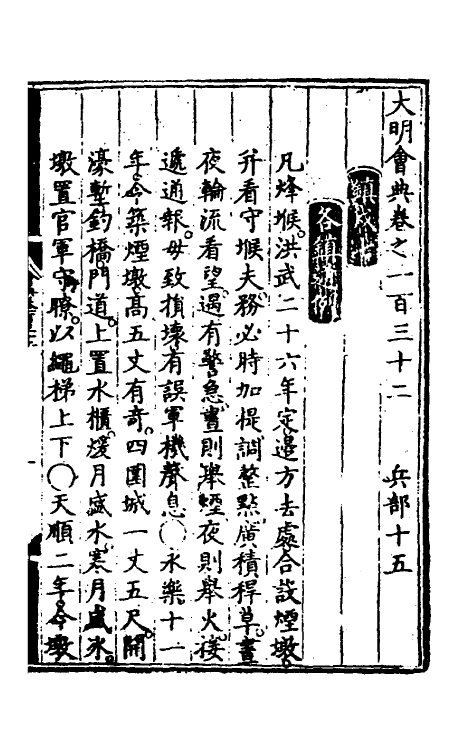 大明會典卷之一百三十二 兵部十五
鎮戍七
各鎮通例
凡烽堠。洪武二十六年定邊方去處合設煙墩。
并看守堠夫。務必時加提調整點。廣積稈草。晝
夜輪流看望。遇有警急。晝則舉煙。夜則舉火。接
遞通報。毋致損壞有誤軍機聲息〇永樂十一
年。令築煙墩高五丈有奇。四圍城一丈五尺。開
濠塹釣橋門道。上置水櫃。煖月盛水。寒月盛冰。
墩置官軍守瞭。以繩梯上下〇天順二年。令墩